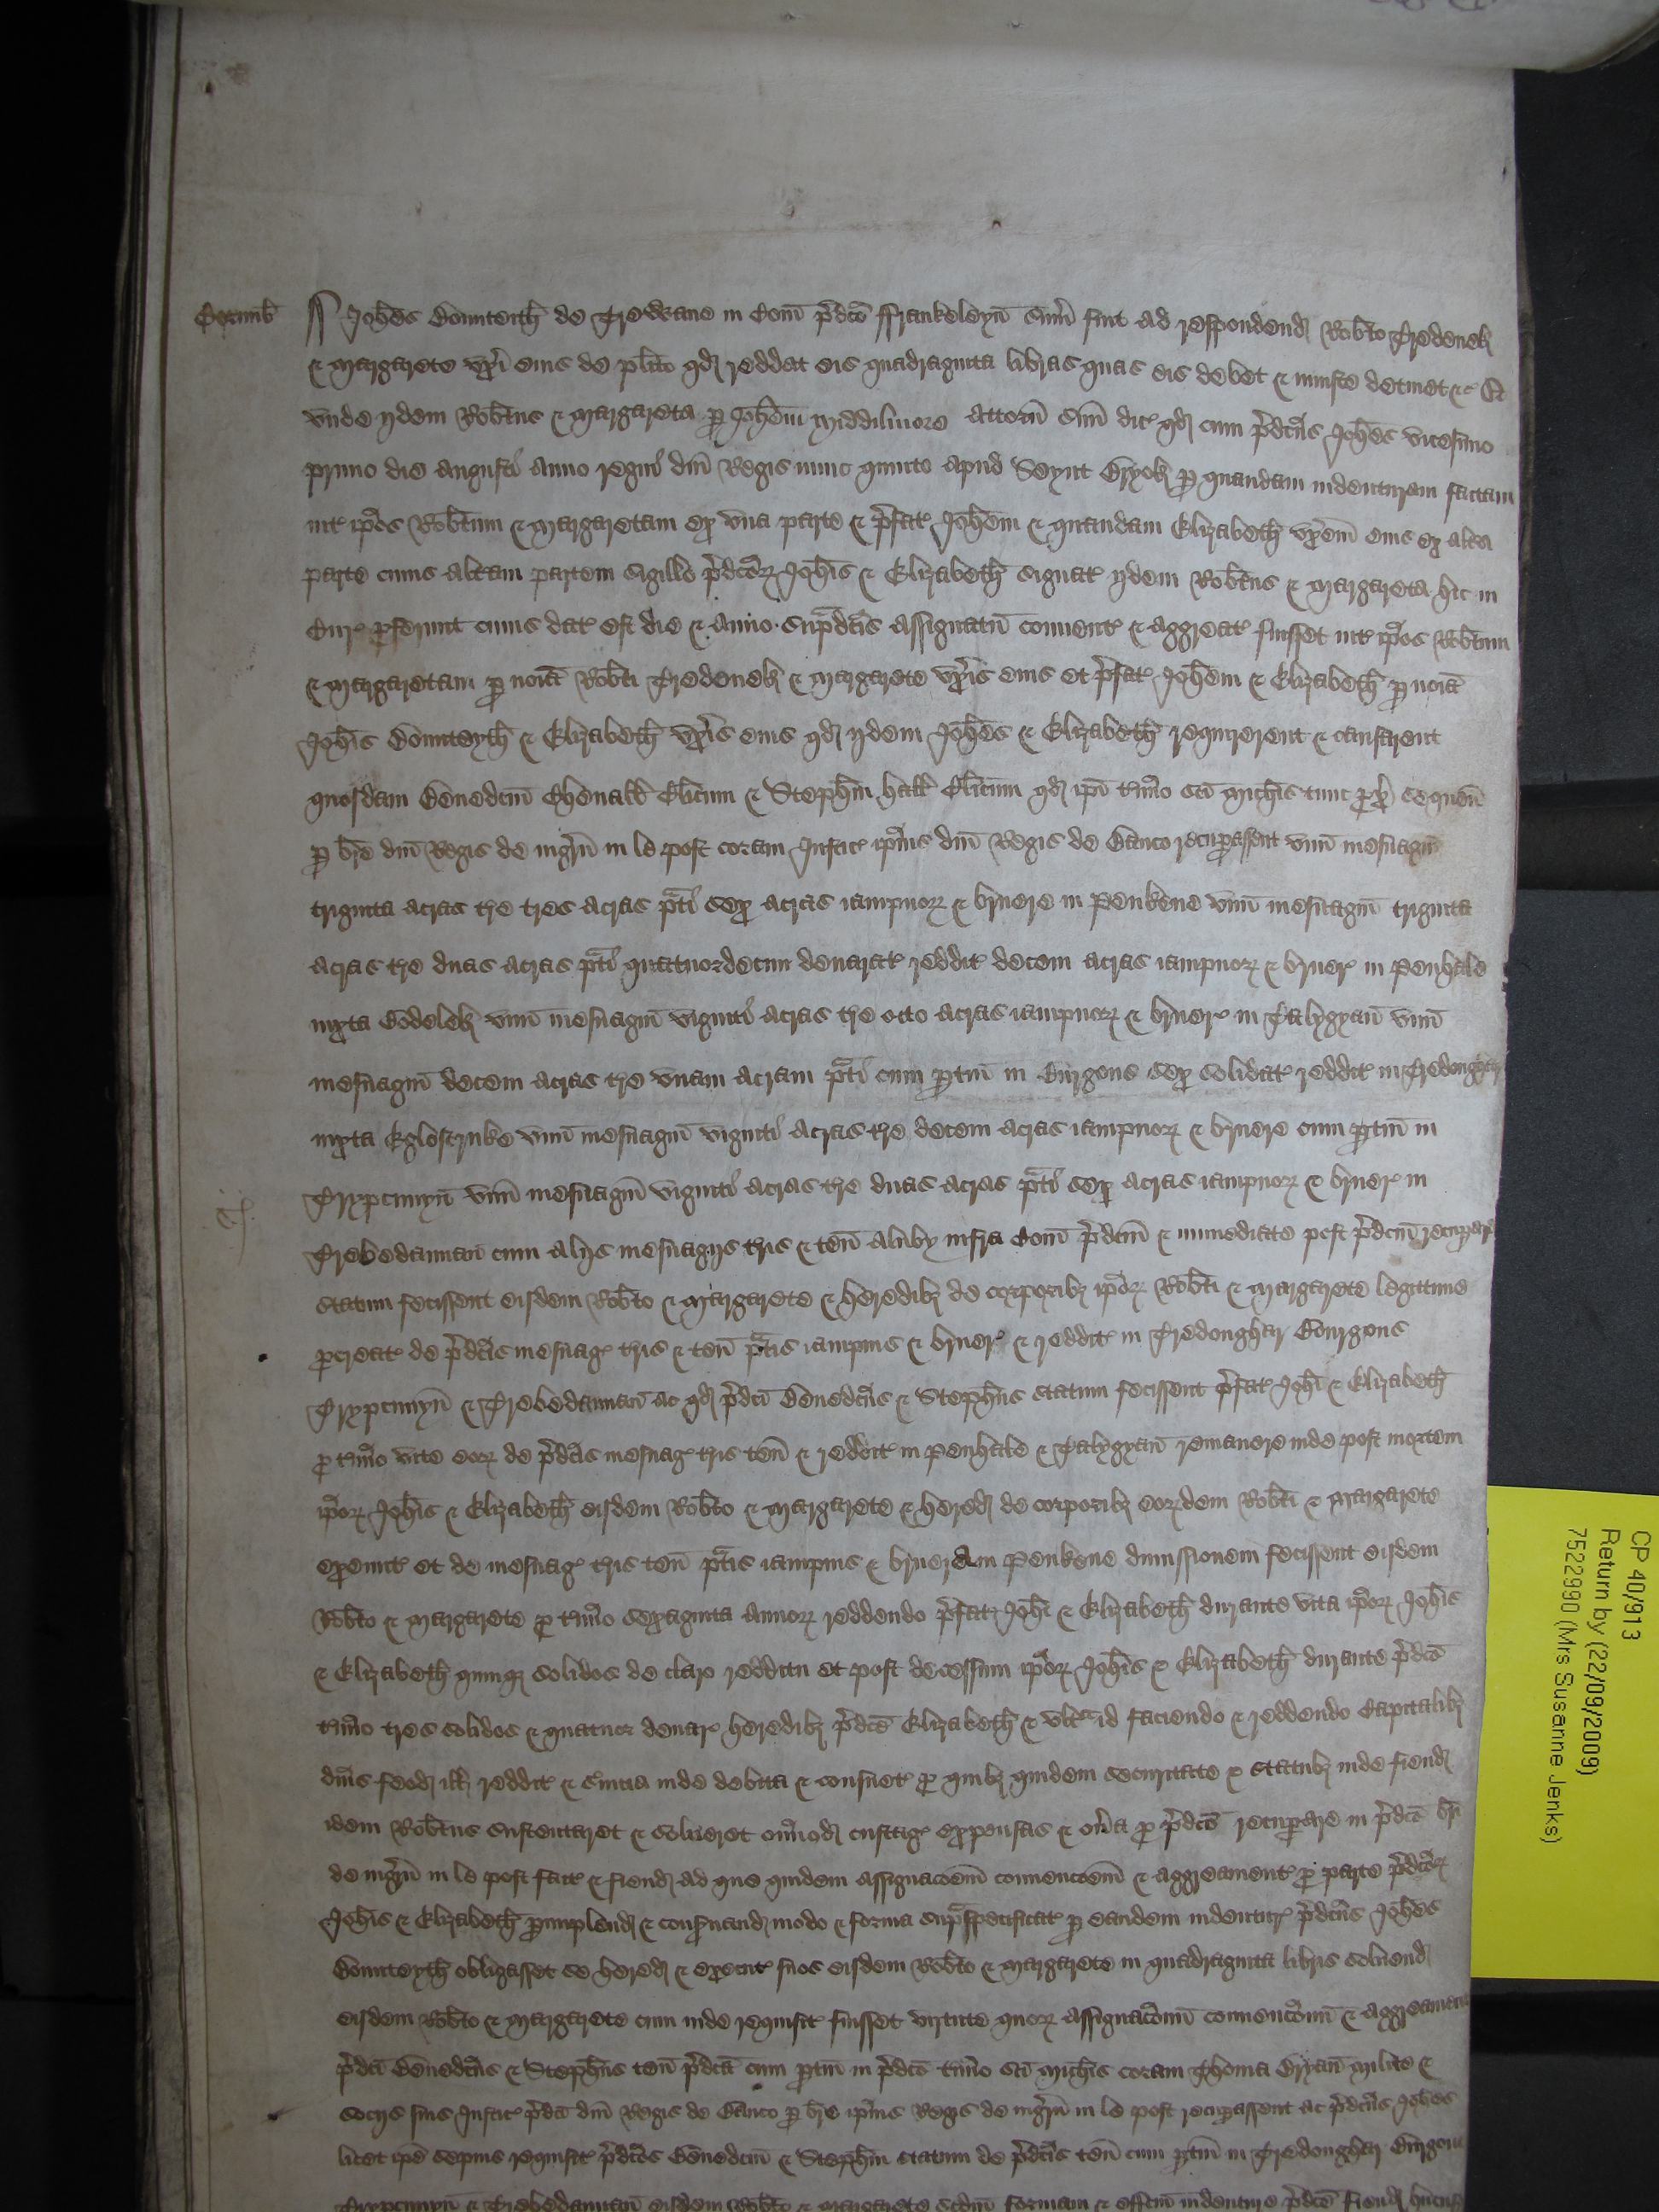 Cornub
Joħes Bonnteith de Trewane in Com̄ p̄dc̄o ffrankeleyn̄ sum̄ fuit ad respondend Rob̄to Tredenek
& Margarete ux̄i eius de pl̄ito qd reddat eis quadraginta libras quas eis debet & iniuste detinet &c Et
unde ijdem Rob̄tus & Margareta p Joħem Middilmore Attorn̄ suū dic̄ qd cum p̄dc̄us Joħes vicesimo
primo die augusti Anno regni dn̄i Regis nunc quinto apud Seynt Bryok p quandam indenturam factam
int̄ ip̄os Rob̄tum & Margaretam ex una parte & p̄fat Joħem & quandam Elizabeth ux̄em eius ex altera
parte cuius alteram partem sigillo p̄dc̄oꝝ Joħis & Elizabeth signat ijdem Rob̄tus & Margareta hic in
Cur̄ p̄ferunt cuius dat est die & Anno sup̄dc̄is assignatū convent & aggreat fuisset int̄ ip̄os Rob̄tum
& Margaretam p noīa Rob̄ti Tredenek & Margarete ux̄is eius et p̄fat Joħem & Elizabeth p noīa
Joħis Bonnteyth & Elizabeth ux̄is eius qd ijdem Joħes & Elizabeth requirerent & causarent
quosdam Benedc̄m Chenall Cl̄icum & Stepħm hall Cl̄icum qd ip̄i t̄mīo sc̄i Micħis tunc px̄ sequen̄
p br̄e dn̄i Regis de ingr̄u in le post coram Justic̄ ip̄ius dn̄i Regis de Banco recupassent unū mesuagiū
triginta acras t̄re tres acras p̄ti sex acras iampnoꝝ & bruere in Penkene unū mesuagiū triginta
acras t̄re duas acras p̄ti quatuordecim denarat reddit decem acras iampnoꝝ & bruer̄ in Penhale
iuxta Bodelek unū mesuagiū viginti acras t̄re octo acras iampnoꝝ & bruer̄ in Talygyan̄ unū
mesuagiū decem acras t̄re unam acram p̄ti cum ptin̄ in Burgons sex solidat reddit in Tredonghar
iuxta Eglostruke unū mesuagiū viginti acras t̄re decem acras iampnoꝝ & bruere cum ptin̄ in
Trypcunyn̄ unū mesuagiū viginti acras t̄re duas acras p̄ti sex acras iampnoꝝ & bruer̄ in
Trebedannan cum alijs mesuagijs t̄ris & ten̄ aliby infra Com̄ p̄dc̄m & immediate post p̄dc̄m recupare
statum fecissent eisdem Rob̄to & Margarete & heredibȝ de corporibȝ ip̄oꝝ Rob̄ti & Margarete legittime
pcreat de p̄dc̄is mesuag t̄ris & ten̄ p̄tis iampnis & bruer̄ & reddit in Tredonghar Bourgons
Trypcunyn̄ & Trebedannan ac qd p̄dc̄i Benedc̄us & Stepħus statum fecissent p̄fat Joħi & Elizabeth
p t̄mīo vite eoꝝ de p̄dc̄is mesuag t̄ris ten̄ & reddit in Penhale & Talygyan̄ remanere inde post mortem
ip̄oꝝ Joħis & Elizabeth eisdem Rob̄to & Margarete & hered de corporibȝ eoꝝdem Rob̄ti & Margarete
exeunt et de mesuag t̄ris ten̄ p̄tis iampnis & bruera in Penkene dimissionem fecissent eisdem
Rob̄to & Margarete p t̄mīo sexaginta annoꝝ reddendo p̄fat Joħi & Elizabeth durante vita ip̄oꝝ Joħis
& Elizabeth quinqȝ solidos de claro redditu et post decessum ip̄oꝝ Joħis & Elizabeth durante p̄dc̄o
t̄mīo tres solidos & quatuor denar̄ heredibȝ p̄dc̄e Elizabeth & ult̄a id faciendo & reddendo Capitalibȝ
dn̄is feod ill reddit & s̄vicia inde debita & consuet p quibȝ quidem securitate & statubȝ inde fiend
idem Rob̄tus sustentaret & solveret om̄imod custag expensas & on̄a p p̄dc̄o recupare in p̄dc̄o br̄i
de ingr̄u in le post fact & fiend ad que quidem assignac̄oem convenc̄oem & aggreament p parte p̄dc̄oꝝ
Joħis & Elizabeth pimplend & conservand modo & forma sup̄aspecificat p eandem indentur̄ p̄dc̄us Joħes
Bonnteyth obligasset se hered & execut suos eisdem Rob̄to & Margarete in quadraginta libris solvend
eisdem Rob̄to & Margarete cum inde requisit fuisset virtute quoꝝ assignac̄onū convenc̄onū & aggreament
p̄dc̄i Benedc̄us & Stepħus ten̄ p̄dc̄a cum ptin̄ in p̄dc̄o t̄mīo sc̄i Micħis coram Thoma Bryan̄ Milite &
socijs suis Justic̄ p̄dc̄i dn̄i Regis de Banco p br̄e ip̄ius Regis de ingr̄u in le post recupassent ac p̄dc̄us Joħes
licet ip̄e sepius requisit p̄dc̄os Benedc̄m & Stepħm statum de p̄dc̄is ten̄ cum ptin̄ in Tredonghar Burgons
Trypcunyn̄ & Trebedannan eisdem Rob̄to & Margarete sc̄dm formam & effc̄m indenture p̄dc̄e fiend
CP 40/913
Return by (22/09/2009)
7522990 (Mrs Susanne Jenks)